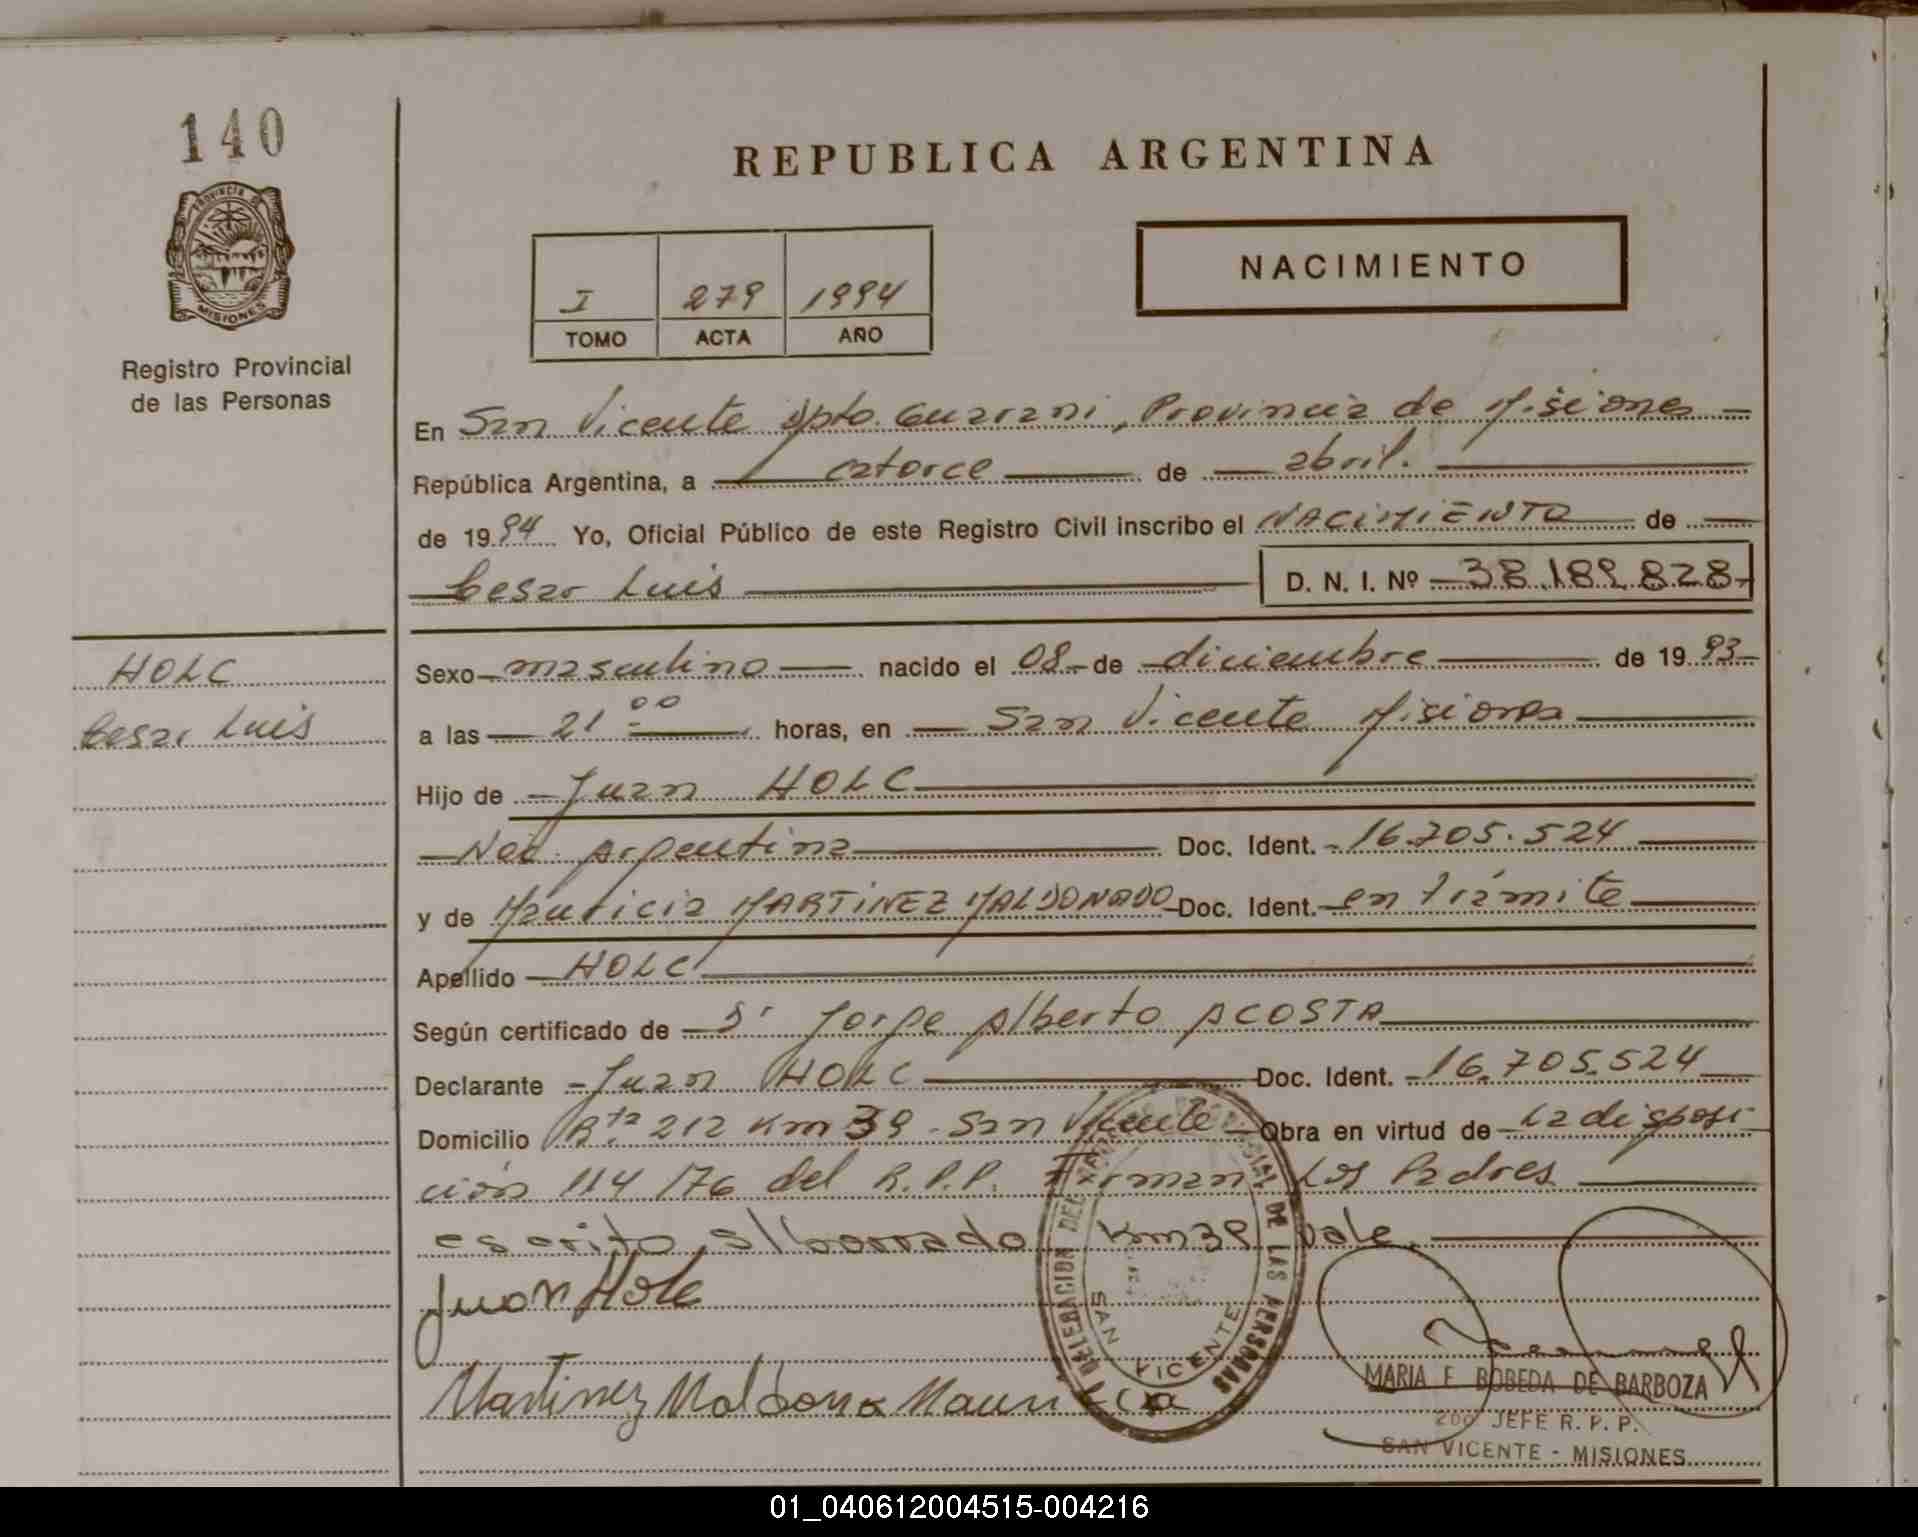 140
PROVINCIA DE
MISIONES
Registro Provincial
de las Personas
REPUBLICA ARGENTINA
I 279 1994
TOMO ACTA AÑO
NACIMIENTO
En San Vicente Dpto. Guarani, Provincia de Misiones
República Argentina, a catorce de abril.
de 1994 Yo, Oficial Público de este Registro Civil inscribo el NACIMIENTO de
Cesar Luis D. N. I. Nº 38.189.828
HOLC
Cesar Luis
Sexo masculino nacido el 08 de diciembre de 1993
a las 21 00 horas, en San Vicente Misiones
Hijo de Juan HOLC
Nac. Argentina Doc. Ident. 16.705.524
y de Mauricia MARTINEZ MALDONADO Doc. Ident. en trámite
Apellido HOLC
Según certificado de Jorge Alberto ACOSTA
Declarante Juan HOLC Doc. Ident. 16.705.524
Domicilio Rta 212 Km 39 - San Vicente Obra en virtud de la disposi
ción 114/76 del R.P.P. Firman Los Padres
escrito s/borrado Km 39 vale.
Juan Holc
Martinez Maldona Mauricia
DELEGACION DEL REGISTRO PROVINCIAL DE LAS PERSONAS
SAN VICENTE
MARIA E. BOBEDA DE BARBOZA
2do JEFE R. P. P.
SAN VICENTE - MISIONES
01_040612004515-004216